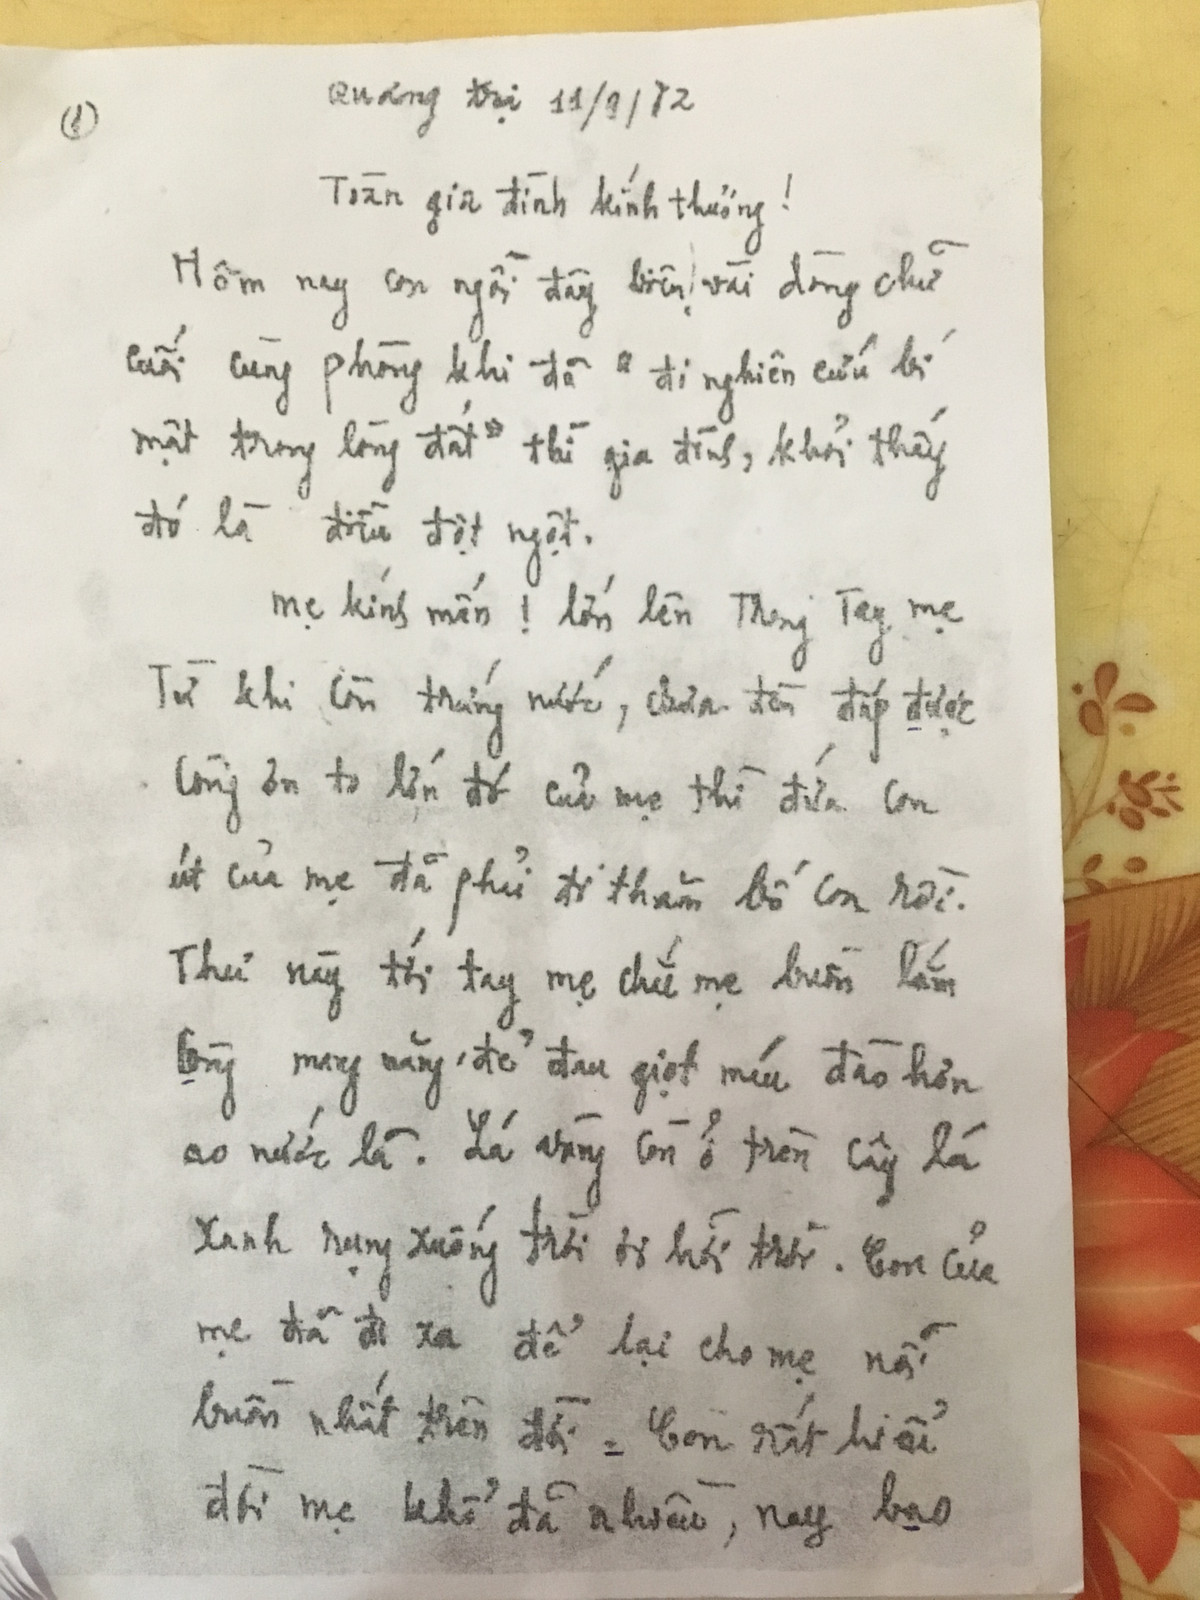 (1)
Quảng trị 11/9/72
Toàn gia đình kính thương!
Hôm nay con ngồi đây biên vài dòng chữ
cuối cùng phòng khi đã "đi nghiên cứu bí
mật trong lòng đất" thì gia đình, khỏi thấy
đó là điều đột ngột.
Mẹ kính mến! lớn lên Trong Tay mẹ
Từ khi còn trứng nước, chưa đền đáp được
công ơn to lớn đó của mẹ thì đứa con
út của mẹ đã phải đi thăm bố con rồi.
Thư này tới tay mẹ chắc mẹ buồn lắm
lòng mang nặng, đẻ đau giọt máu đào hơn
ao nước lã. Lá vàng còn ở trên cây lá
xanh rụng xuống trời ơi hỡi trời. Con của
mẹ đã đi xa để lại cho mẹ nỗi
buồn nhất trên đời. Con rất hiểu
đời mẹ khổ đã nhiều, nay bao